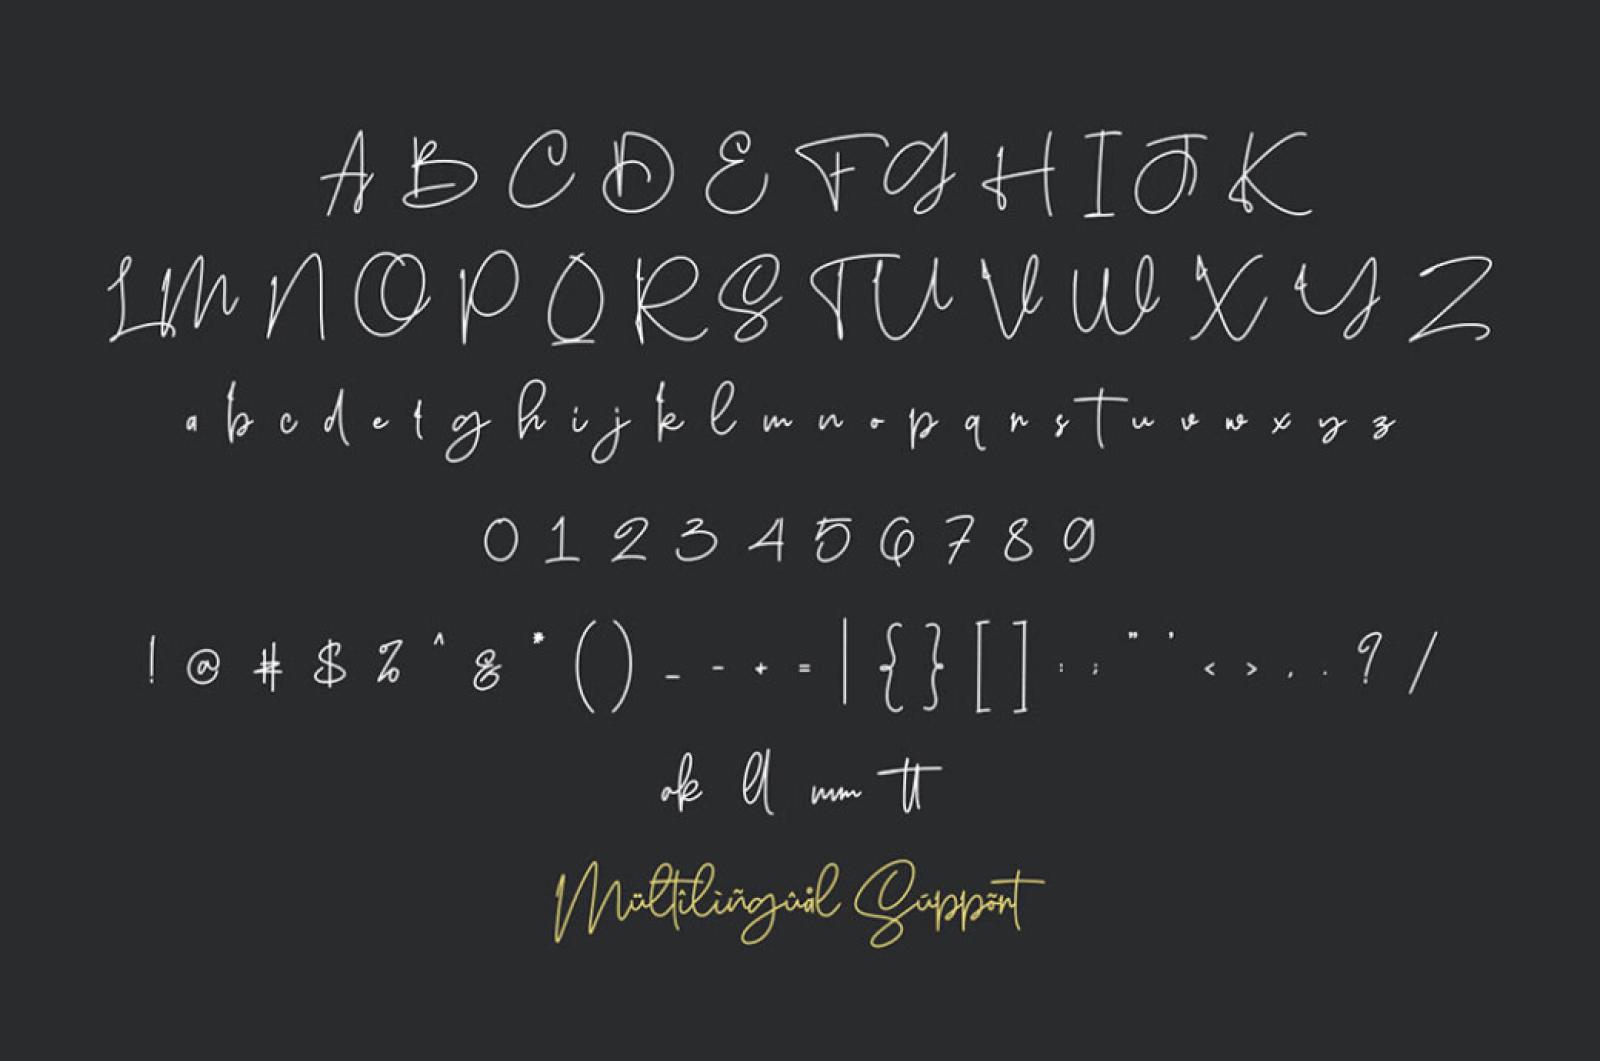 A B C D E F G H I J K
L M N O P Q R S T U V W X Y Z
a b c d e f g h i j k l m n o p q r s t u v w x y z
0 1 2 3 4 5 6 7 8 9
! @ # $ % ^ & * ( ) _ - + = | { } [ ] : ; " ' < > , . ? /
ok ll mm tt
Mültîlìñgûål Súppõrt